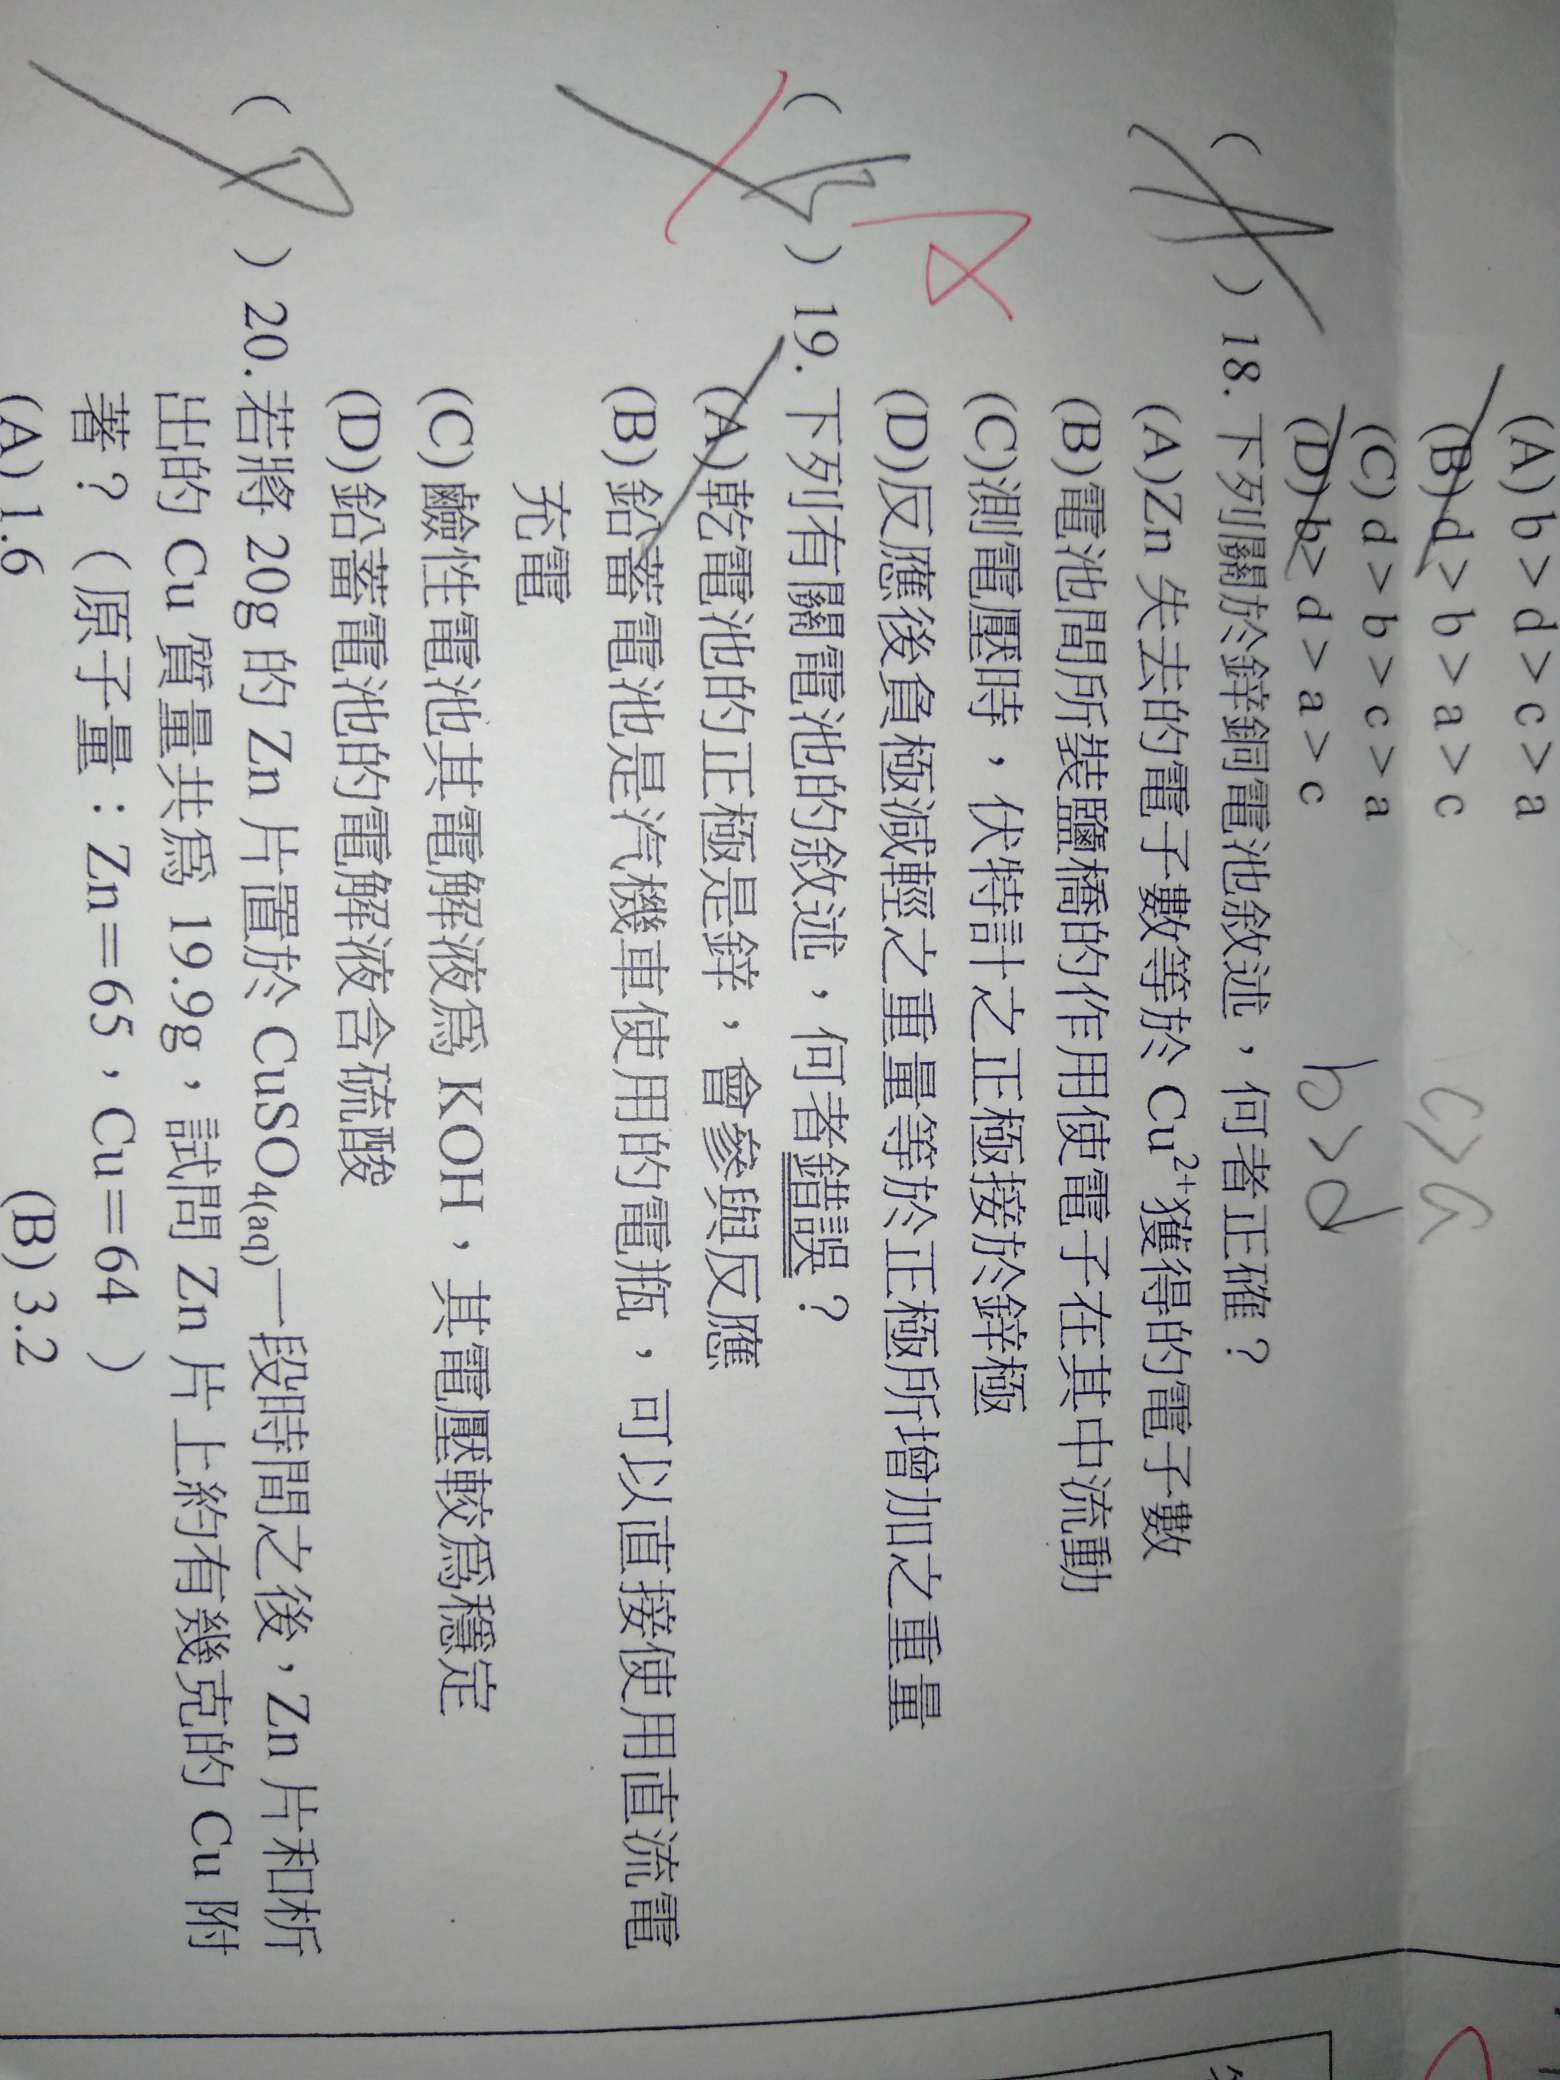 (A) b＞d＞c＞a
(B) d＞b＞a＞c
(C) d＞b＞c＞a
(D) b＞d＞a＞c
c＞a
b＞d
（A）18.下列關於鋅銅電池敘述，何者正確？
(A)Zn 失去的電子數等於 Cu²⁺獲得的電子數
(B)電池間所裝鹽橋的作用使電子在其中流動
(C)測電壓時，伏特計之正極接於鋅極
(D)反應後負極減輕之重量等於正極所增加之重量
A
（ ）19.下列有關電池的敘述，何者錯誤？
(A)乾電池的正極是鋅，會參與反應
(B)鉛蓄電池是汽機車使用的電瓶，可以直接使用直流電
充電
(C)鹼性電池其電解液為 KOH，其電壓較為穩定
(D)鉛蓄電池的電解液含硫酸
（ ）20.若將 20g 的 Zn 片置於 CuSO₄(aq)一段時間之後，Zn 片和析
出的 Cu 質量共為 19.9g，試問 Zn 片上約有幾克的 Cu 附
著？（原子量：Zn＝65，Cu＝64）
(A) 1.6 (B) 3.2